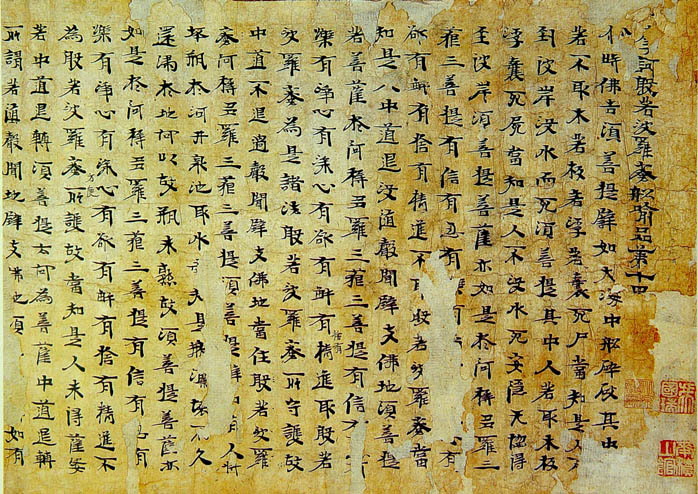 訶般若波羅蜜船喻品第十四
尒時佛告須菩提譬如大海中船破其中
若不取木若板若浮若囊死尸當知是人
到彼岸沒水而死須菩提其中人若取木板
浮囊死屍當知是人不沒水死安隱无礙得
至彼岸須菩提菩薩亦如是於阿耨多羅三
藐三菩提有信有忍有
欲有解有捨有精進不取般若波羅蜜當
知是人中道退沒墮聲聞辟支佛地須菩提
若菩薩於阿耨多羅三藐三菩提有信有
樂有淨心有深心有欲有解有捨有精進取般若
波羅蜜為是諸法般若波羅蜜所守護故
中道不退過聲聞辟支佛地當住般若波羅
蜜阿耨多羅三藐三菩提須菩提譬有人持
坏瓶於河井泉池取水當知是瓶壞不久
還歸於地何以故瓶未熟故須菩提菩薩亦
如是於阿耨多羅三藐三菩提有信有忍有
樂有淨心有深心有欲有解有捨有精進不
為般若波羅蜜方便所護故當知是人未得薩婆
若中道退轉須菩提云何為菩薩中道退轉
所謂若墮聲聞地辟支佛地須 如有